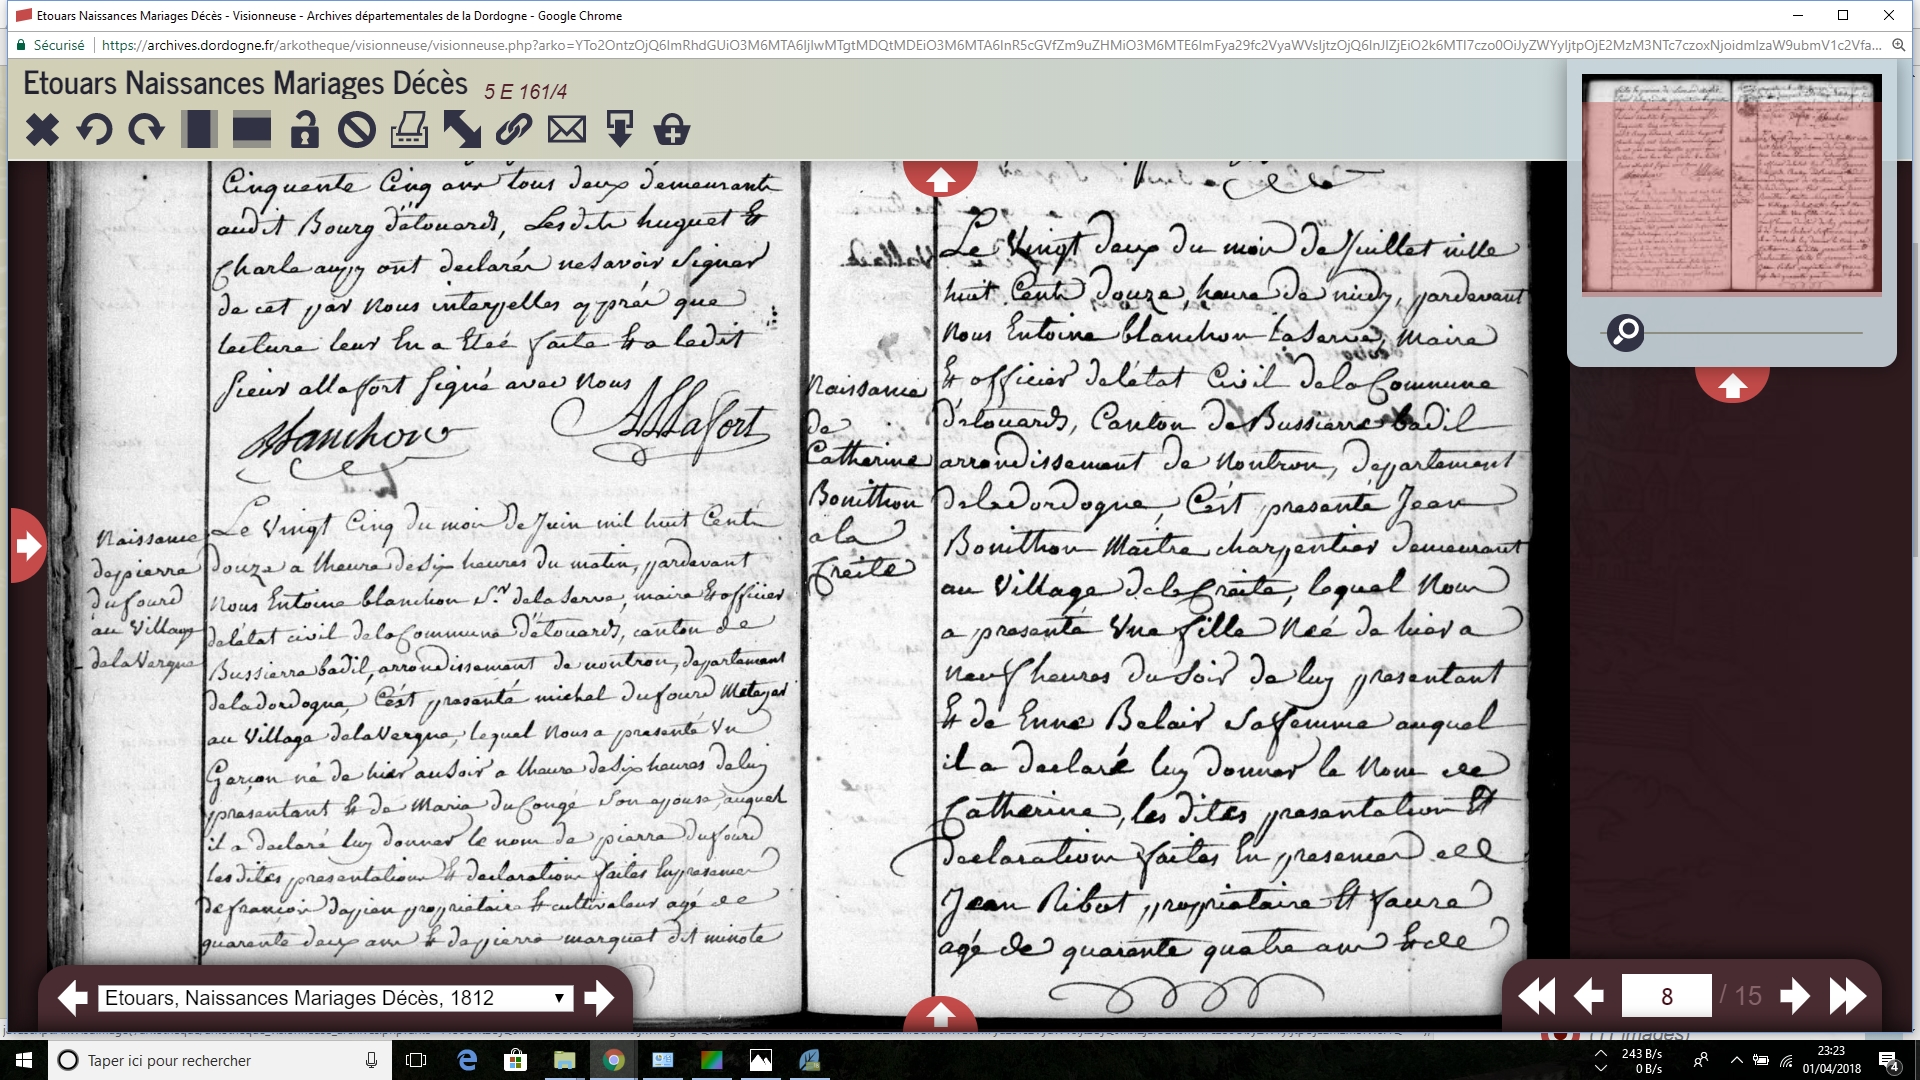 Etouars Naissances Mariages Décès - Visionneuse - Archives départementales de la Dordogne - Google Chrome
Sécurisé
Etouars Naissances Mariages Décès 5 E 161/4
Cinquente Cinq ans tous deux demeurants
audit Bourg d'étouards, Lesdits huguet Et
Charle aupy ont declarés ne Savoir Signer
de cet par Nous interpelles apprés que
lecture leur En a Eteé faite Et a ledit
sieur allafort signé avec Nous
Blanchon
Allafort
Naissance
de pierre
dufourd
au Village
de la Vergne
Le Vingt Cinq du mois de Juin mil huit Cents
douze a lheure de Six heures du matin, pardevant
Nous Entoine blanchon Sr. de la Serve, maire Et officier
de l'état civil de la Commune d'étouards, canton de
Bussierre badil, arrondissement de nontron, departement
de la dordogne, C'ést presenté michel dufourd Metayer
au Village de la Vergne, lequel Nous a presenté Un
Garçon né de hier au Soir a lheure de Six heures de luy
presentant Et de Marie du Congé Son epouse, auquel
il a declaré luy donner le nom de pierre dufourd
les dites presentations Et declarations faites En presence
de françois proprietaire Et cultivateur agé de
quarente deux ans Et de pierre marquet dit minote
Naissance
de
Catherine
Bonithon
a la
Creite
Le Vingt deux du mois de Juillet mille
huit Cents douze, heure de midy, pardevant
Nous Entoine blanchon LaServe, Maire
Et officier de l'état Civil de la Commune
d'étouards, Canton de Bussierre badil
arrondissement de Nontron, departement
de la dordogne, C'ést presenté Jean
Bonithon Maitre charpentier demeurant
au Village de la Creite, lequel Nous
a presenté Une fille Neé de hier a
neuf heures du Soir de luy presentant
Et de Enne Belair Sa femme auquel
il a declaré luy donner le Nom de
Catherine, les dites presentation Et
declarations faites En presence de
Jean Ribot, propriétaire Et
agé de quarante quatre ans Et de
Etouars, Naissances Mariages Décès, 1812
8 / 15
Taper ici pour rechercher
243 B/s
0 B/s
23:23
01/04/2018
4